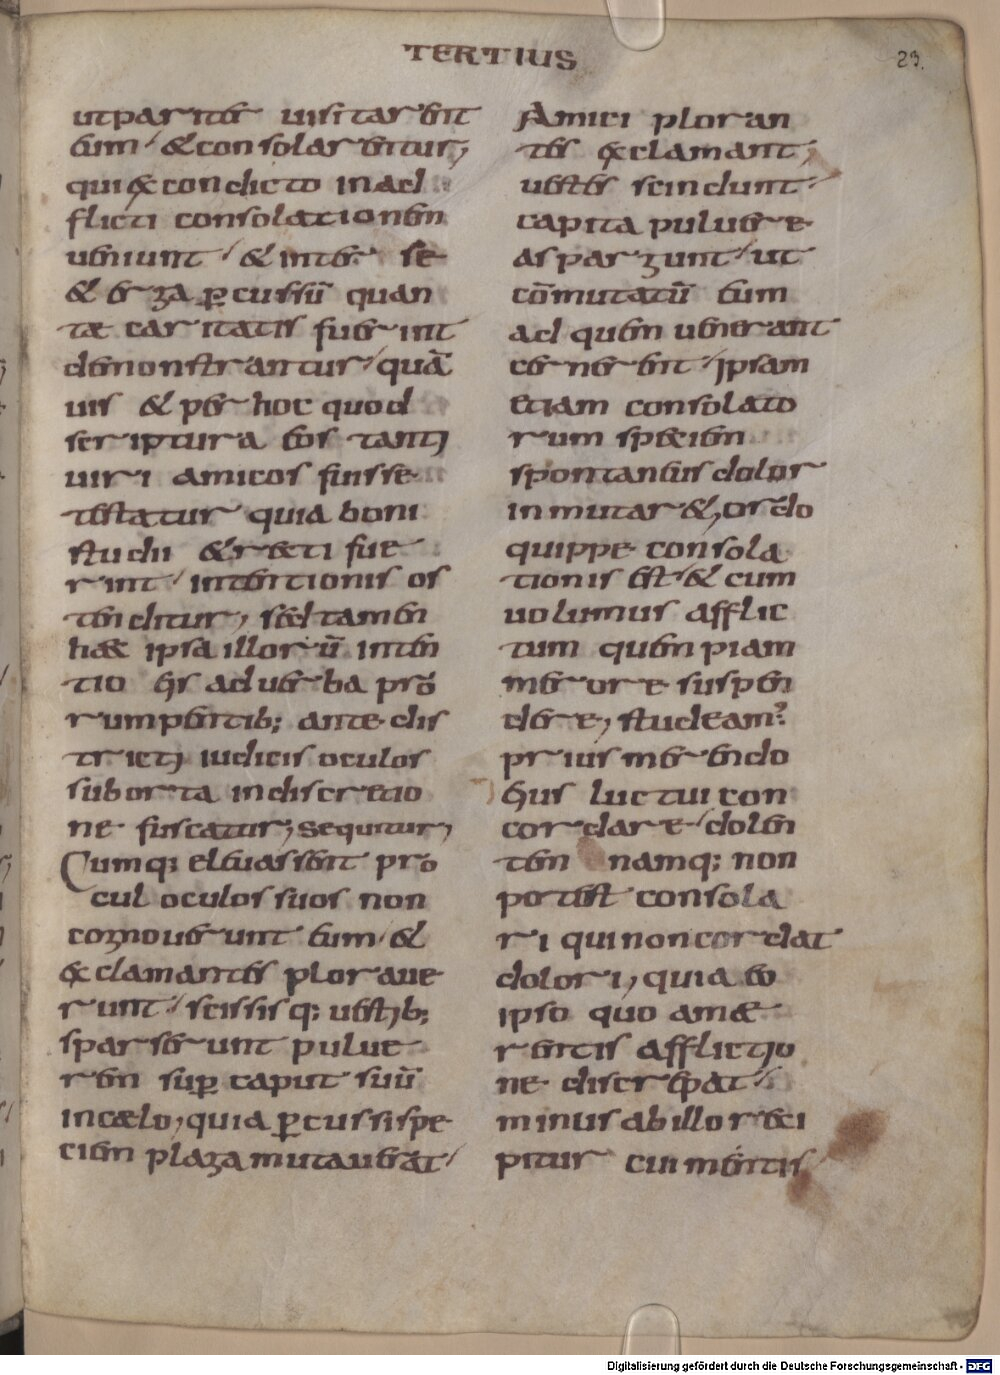 TERTIUS
23.
ut pariter uisitarent
eum / & consolarentur;
qui ex condicto in ad
flicti consolationem
ueniunt / & inter se
& erga p̱cussū quan
tae caritatis fuerint
demonstrantur / quā
uis & per hoc quod
scriptura eos tanti
uiri amicos fuisse
testatur quia boni
studii & recti fue
rint / intentionis os
tenditur, sed tamen
haec ipsa illorū inten
tio eis ad uerba pro
rumpentib; ante dis
tricti iudicis oculos
suborta indiscretio
ne fuscatur; Sequitur;
Cumq; eleuassent pro
cul oculos suos non
cognouerunt eum / &
exclamantes ploraue
runt / scissisq; uestib;
sparserunt pulue
rem sup̱ caput suū
in caelo, quia p̱cussi spe
ciem plaga mutauerat /
Amici ploran
tes exclamant;
uestes scindunt /
capita puluere
aspargunt / ut
cōmutatū eum
ad quem uenerant
cernerent / ipsam
etiam consolato
rum speciem
spontaneus dolor
inmutar&, ordo
quippe consola
tionis est / & cum
uolumus afflic
tum quempiam
merore suspen
dere, studeam?
prius merendo
eius luctui con
cordare / dolen
tem namq; non
potest consola
ri qui non concordat
dolori, quia eo
ipso quo a mae
rentis afflictio
ne discrepat /
minus ab illo reci
pitur cui mentis /
Digitalisierung gefördert durch die Deutsche Forschungsgemeinschaft - DFG